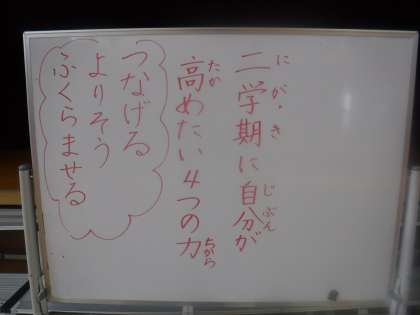 二学期に自分が
にがっき
じぶん
高めたい4つの力
たか
ちから
つなげる
よりそう
ふくらませる